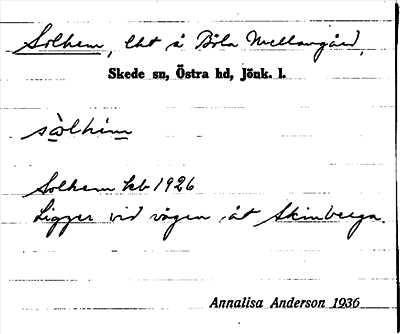 Solhem, lht å Böla Mellangård,
Skede sn, Östra hd, Jönk. l.
sòlhèm
Solhem kb 1926
Ligger vid vägen åt Skinberga.
Annalisa Anderson 1936